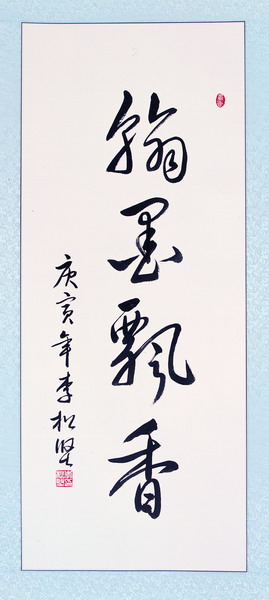 翰墨飘香
庚寅年李松坚